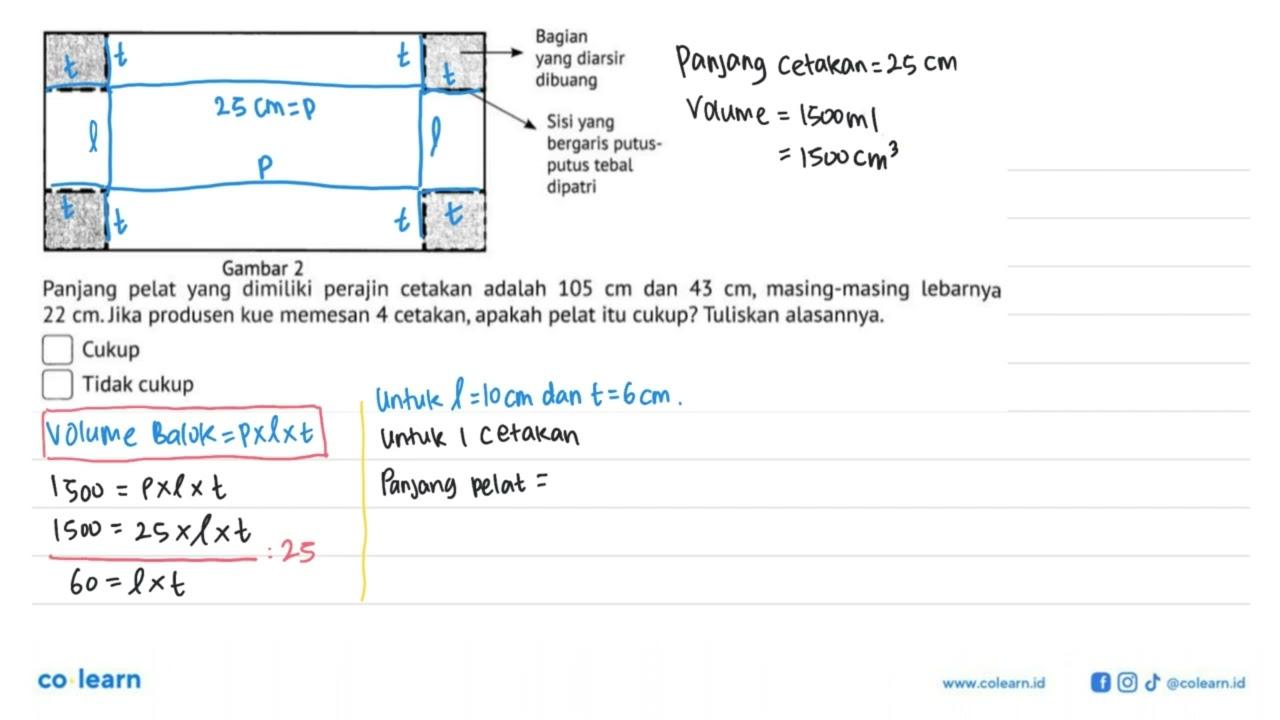 t t t t
Bagian
yang diarsir
dibuang
Panjang cetakan = 25 cm
25 cm = p
Volume = 1500 ml
= 1500 cm³
l l
Sisi yang
bergaris putus-
putus tebal
dipatri
p
t t t t
Gambar 2
Panjang pelat yang dimiliki perajin cetakan adalah 105 cm dan 43 cm, masing-masing lebarnya
22 cm. Jika produsen kue memesan 4 cetakan, apakah pelat itu cukup? Tuliskan alasannya.
Cukup
Tidak cukup
Volume Balok = p x l x t
1500 = p x l x t
1500 = 25 x l x t
: 25
60 = l x t
Untuk l = 10 cm dan t = 6 cm.
Untuk 1 cetakan
Panjang pelat =
co learn
www.colearn.id
@colearn.id